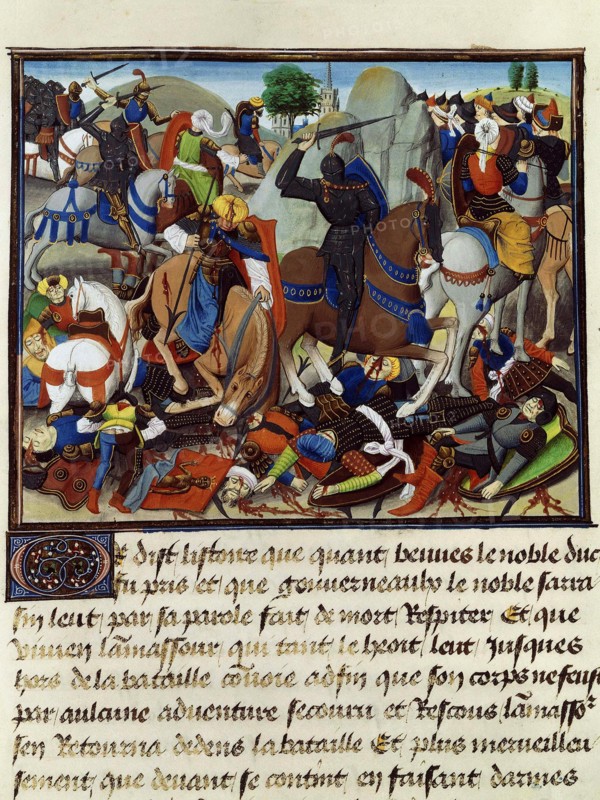 Or dist listoire que quant beuves le noble duc
fu pris et que gouverneaulx le noble sarra
sin leut par sa parole fait de mort Respiter Et que
vivien lamassour qui tant le heoit leut Jusques
hors de la bataille convoie adfin que son corps ne feust
par aulcune adventure secouru et Rescous lamassor
sen Retourna dedens la bataille Et plus merveilleu
sement que devant se contint en faisant darmes